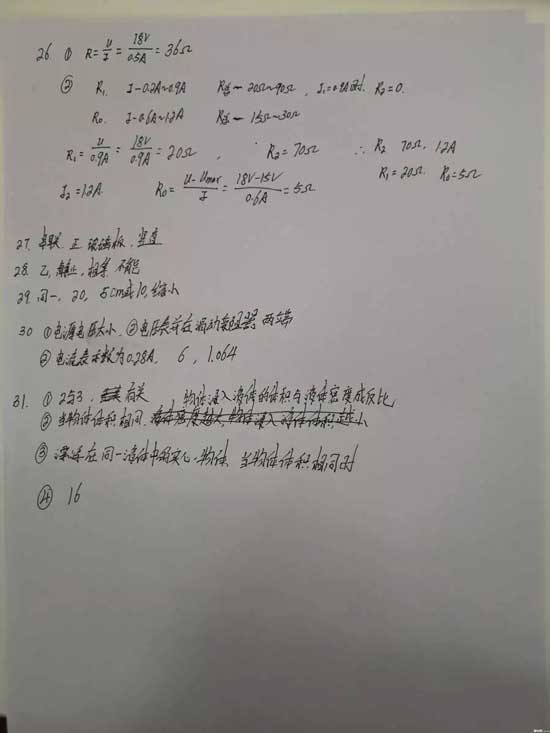 26. ① R=U/I=18V/0.5A=36Ω
② R₁. I-0.2A~0.9A R总-20Ω~90Ω, I₁=0.9A时. R₂=0.
R₀. I-0.6A~1.2A R总-15Ω~30Ω
R₁=U/0.9A=18V/0.9A=20Ω, R₂=70Ω ∴ R₂ 70Ω, 1.2A
I₂=1.2A R₀=(U-Umax)/I=(18V-15V)/0.6A=5Ω R₁=20Ω. R₀=5Ω
27. 串联. 正 玻璃板.
28. 乙, 静止, 相等. 不能
29. 同一, 20, 5cm或10, 缩小
30 ①电源电压太小, ②电压表并在滑动变阻器两端
③电流表示数为0.28A, 6, 1.064
31. ① 2与3, 有关 物体浸入液体的体积与液体密度成反比
② 当物体体积相同, 液体密度越大, 物体浸入液体体积越小
③ 在同一液体中的 物体, 当物体体积相同时
④ 16